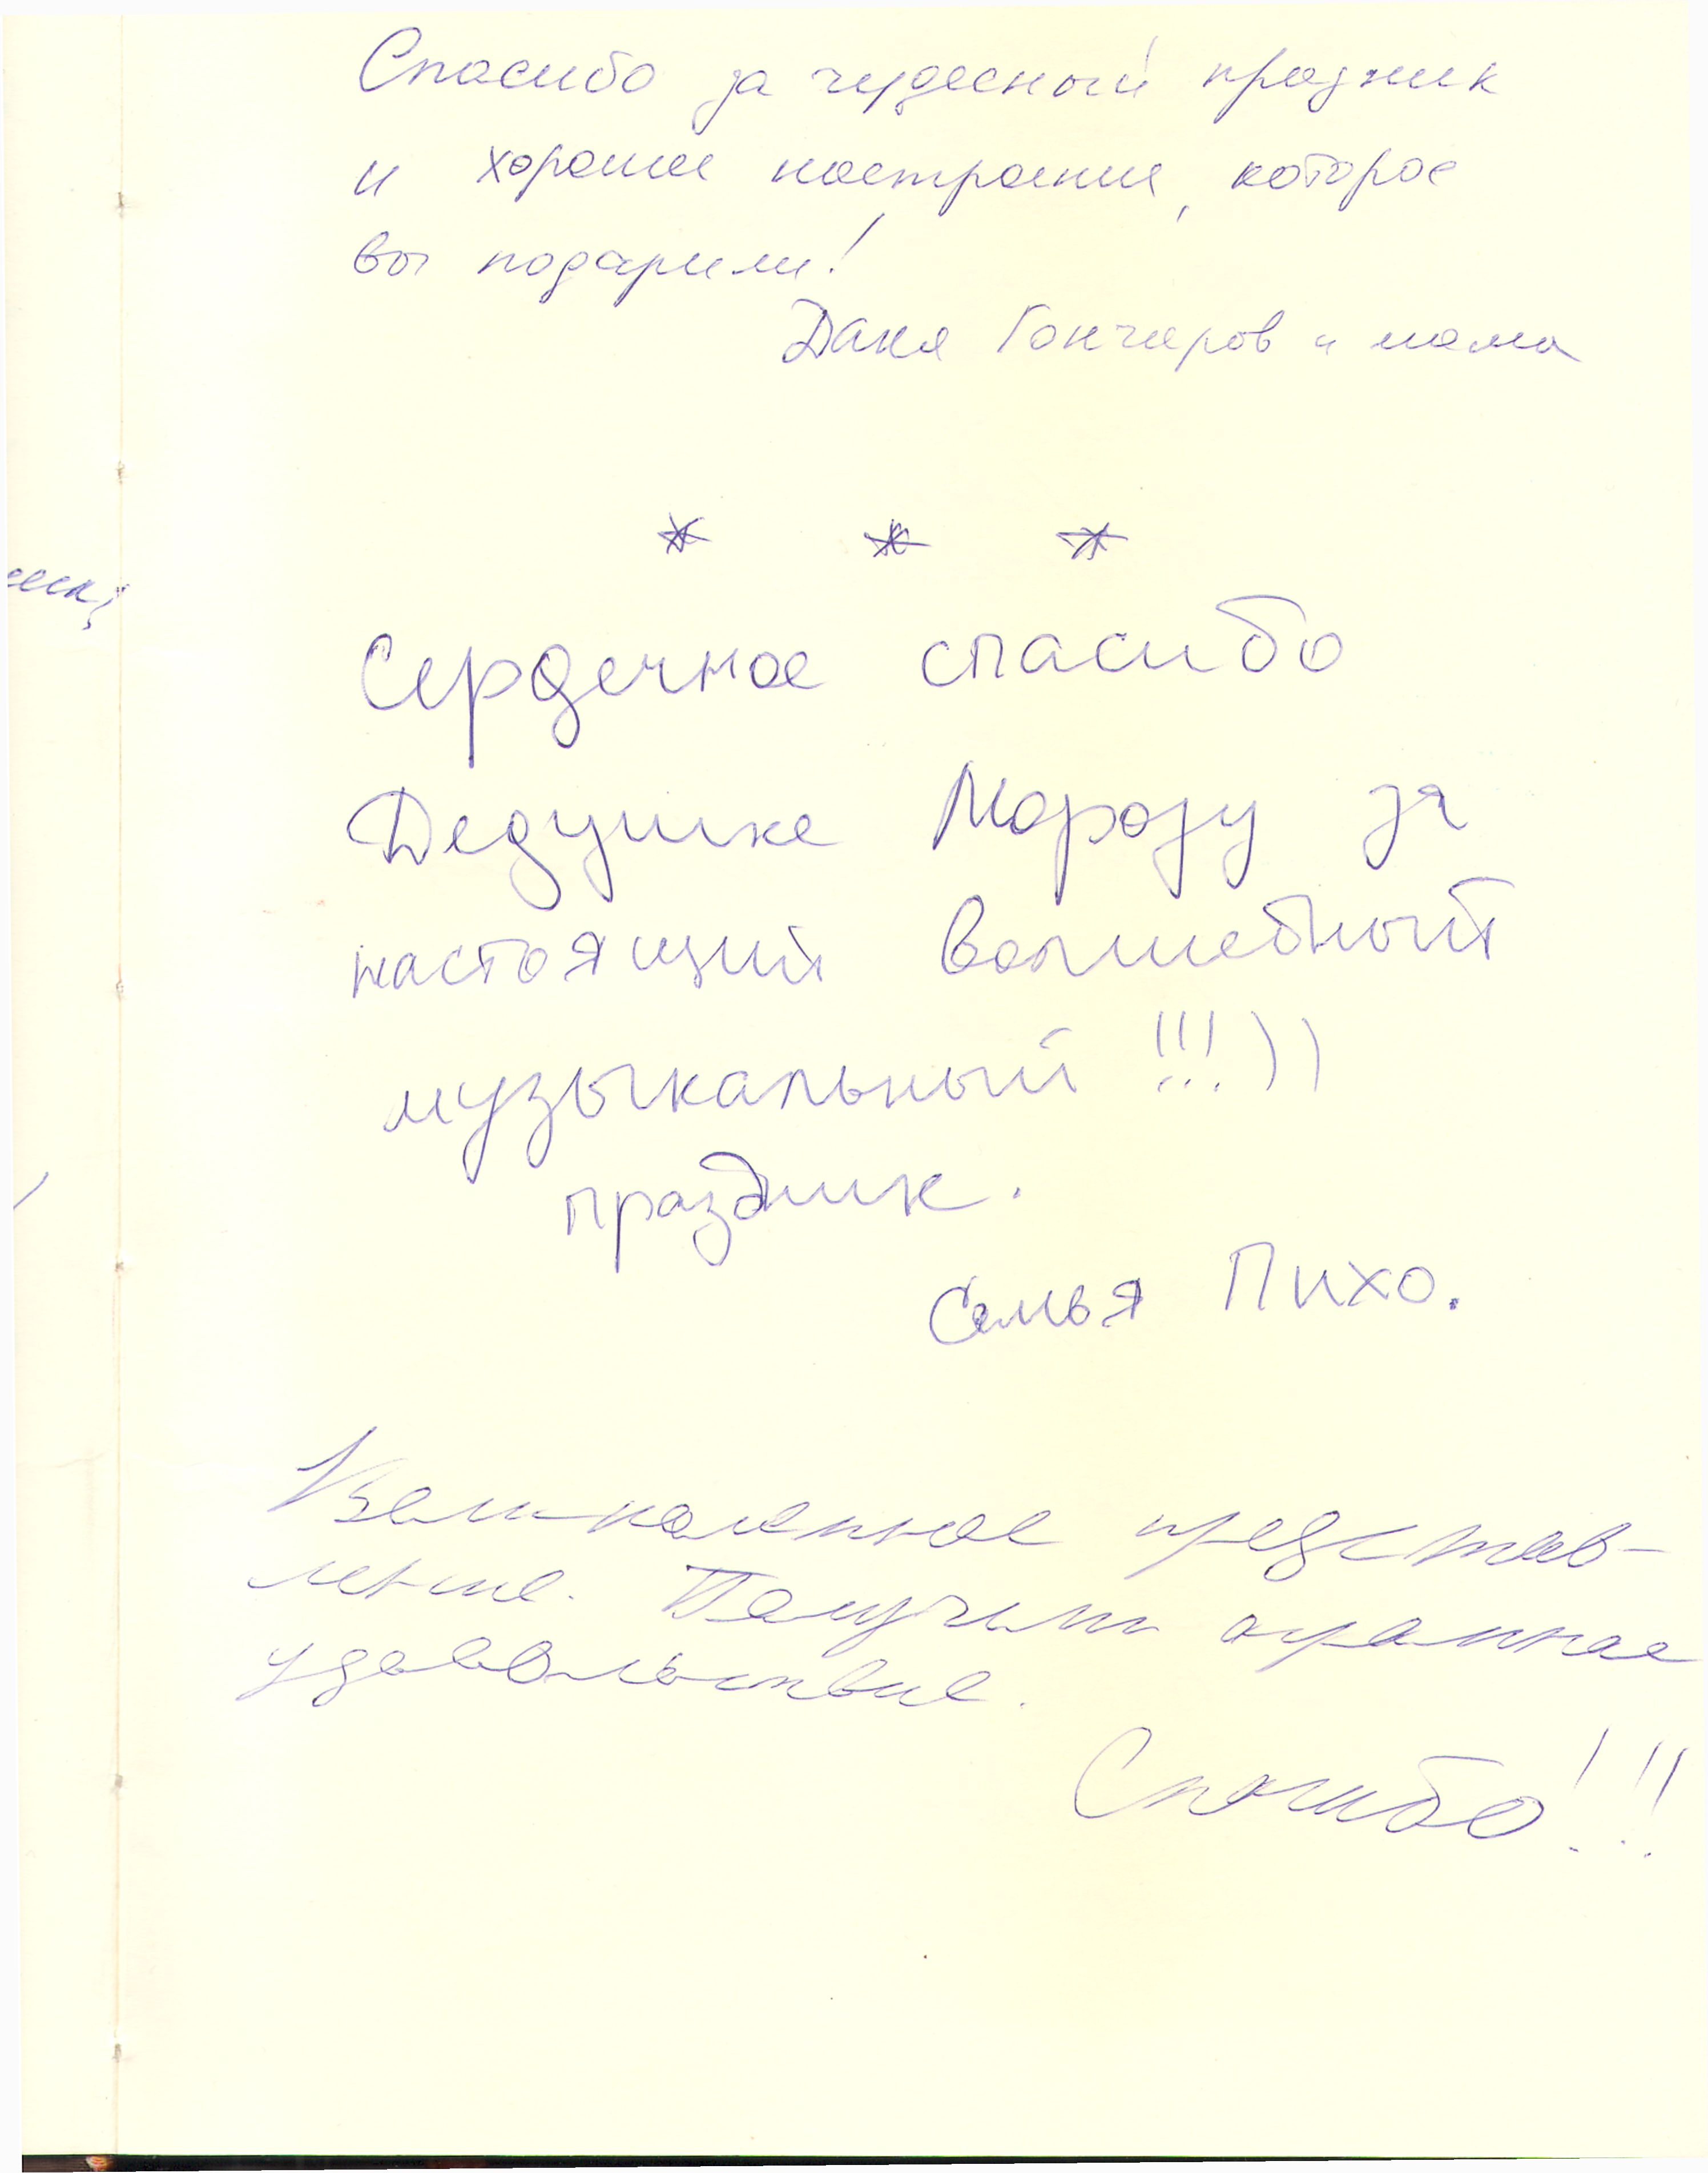 Спасибо за чудесный праздник
и хорошее настроение, которое
вы подарили!
Даня Гончаров и мама
* * *
Сердечное спасибо
Дедушке Морозу за
настоящий волшебный
музыкальный !!!))
праздник.
Семья Пихо.
Великолепное представ-
ление. Получили огромное
удовольствие.
Спасибо!!!